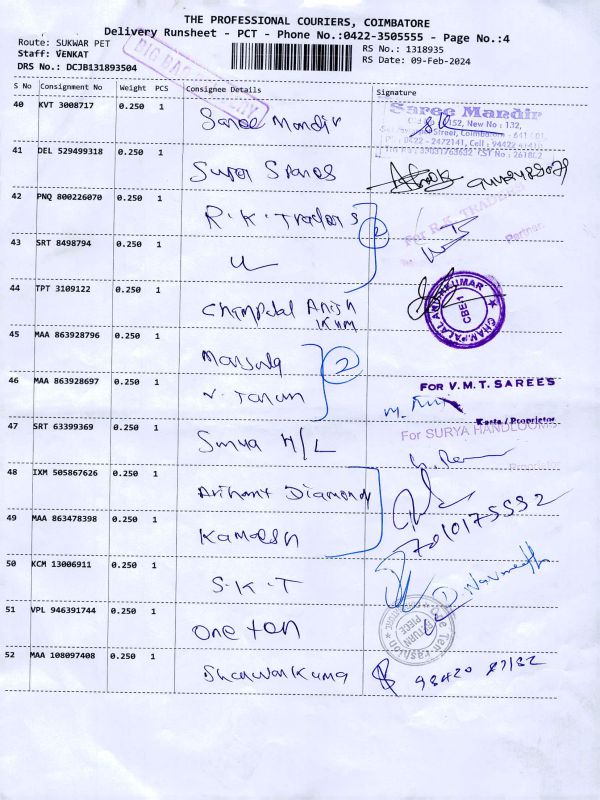 THE PROFESSIONAL COURIERS, COIMBATORE
Delivery Runsheet - PCT - Phone No.:0422-3505555 - Page No.:4
Route: SUKWAR PET
Staff: VENKAT
DRS No.: DCJB131893504
RS No.: 1318935
RS Date: 09-Feb-2024
S No Consignment No Weight PCS Consignee Details Signature
40 KVT 3008717 0.250 1 Saree Mandir
Saree Mandir
152, New No : 132,
41 DEL 529499318 0.250 1 Super Sarees
42 PNQ 800226070 0.250 1 R.K. Traders
2
For R.K. TRADERS
Partner
43 SRT 8498794 0.250 1
44 TPT 3109122 0.250 1 Champalal Anish Kum
CHAMPALAL ANISHKUMAR
CBE1
45 MAA 863928796 0.250 1 Manjula
2
46 MAA 863928697 0.250 1 V. Tarun
FOR V.M.T. SAREES
Karta / Proprietor
47 SRT 63399369 0.250 1 Surya H/L
For SURYA HANDLOOMS
Proprietor
48 IXM 505867626 0.250 1 Arihant Diamond
49 MAA 863478398 0.250 1 Kamalesh
7010175592
50 KCM 13006911 0.250 1 S.K.T
D. Navneeth
51 VPL 946391744 0.250 1 One ten
One Ten Fashion
RETURN PIECE
52 MAA 108097408 0.250 1 Sharwan Kumar
98420 87182